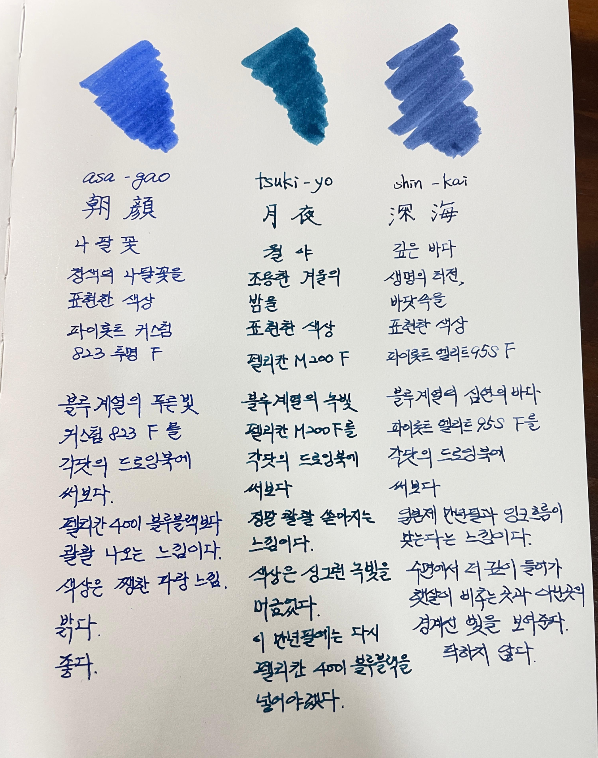 asa-gao
朝顔
나팔꽃
청색의 나팔꽃을
표현한 색상
파이롯트 커스텀
823 투명 F
블루계열의 푸른빛
커스텀 823 F 를
각닷의 드로잉북에
써보다.
펠리칸 4001 블루블랙보다
콸콸 나오는 느낌이다.
색상은 쨍한 파랑 느낌.
밝다.
좋다.
tsuki-yo
月夜
월야
조용한 겨울의
밤을
표현한 색상
펠리칸 M200 F
블루계열의 녹빛
펠리칸 M200 F를
각닷의 드로잉북에
써보다
정말 콸콸 쏟아지는
느낌이다.
색상은 싱그런 녹빛을
머금었다.
이 만년필에는 다시
펠리칸 4001 블루블랙을
넣어야겠다.
shin-kai
深海
깊은 바다
생명의 터전,
바닷속을
표현한 색상
파이롯트 엘리트 95S F
블루계열의 심연의 바다
파이롯트 엘리트 95S F를
각닷의 드로잉북에
써보다
일본제 만년필과 잉크흐름이
맞는다는 느낌이다.
수면에서 더 깊이 들어가
햇살이 비추는 곳과 아닌곳의
경계선 빛을 보여준다.
탁하지 않다.